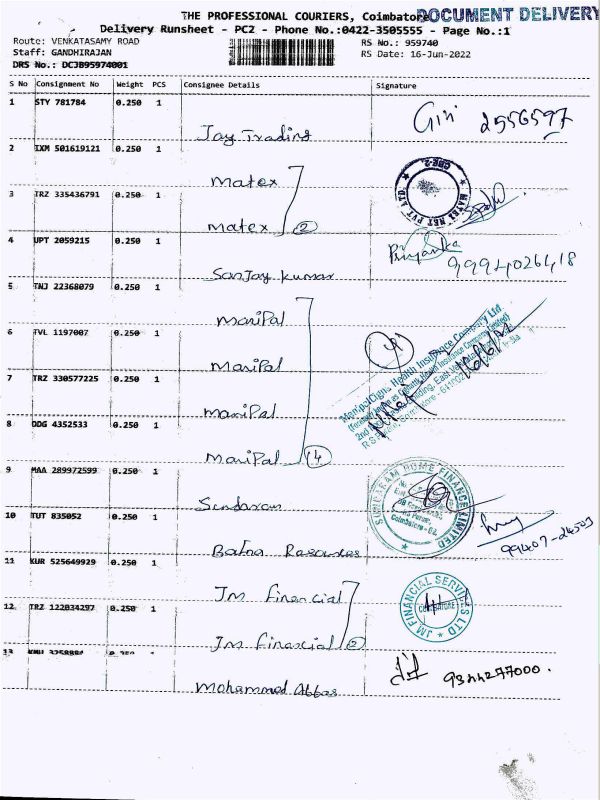 THE PROFESSIONAL COURIERS, Coimbatore
DOCUMENT DELIVERY
Delivery Runsheet - PC2 - Phone No.:0422-3505555 - Page No.:1
Route: VENKATASAMY ROAD
RS No.: 959740
Staff: GANDHIRAJAN
RS Date: 16-Jun-2022
DRS No.: DCJB95974001
S No Consignment No Weight PCS Consignee Details Signature
1 STY 781784 0.250 1
Jay Trading
Giri 2556597
2 IXM 501619121 0.250 1
Matex
CBE-2
MATEX NET PVT LTD
3 TRZ 335436791 0.250 1
Matex 2
4 UPT 2059215 0.250 1
Sanjay Kumar
Priyanka
5 TNJ 22368079 0.250 1
Manipal
6 TVL 1197007 0.250 1
Manipal
ManipalCigna Health Insurance Company Ltd
7 TRZ 330577225 0.250 1
Manipal
8 ODG 4352533 0.250 1
Manipal 4
9 MAA 289972599 0.250 1
Sundaram
SUNDARAM HOME FINANCE LIMITED
Coimbatore - 02.
10 TUT 835052 0.250 1
99407-24503
11 KUR 525649929 0.250 1
Jm Financial
JM FINANCIAL SERVICES LTD
COIMBATORE
12 TRZ 122034297 0.250 1
Jm Financial 2
13
Mohammed Abbas
9344277000.